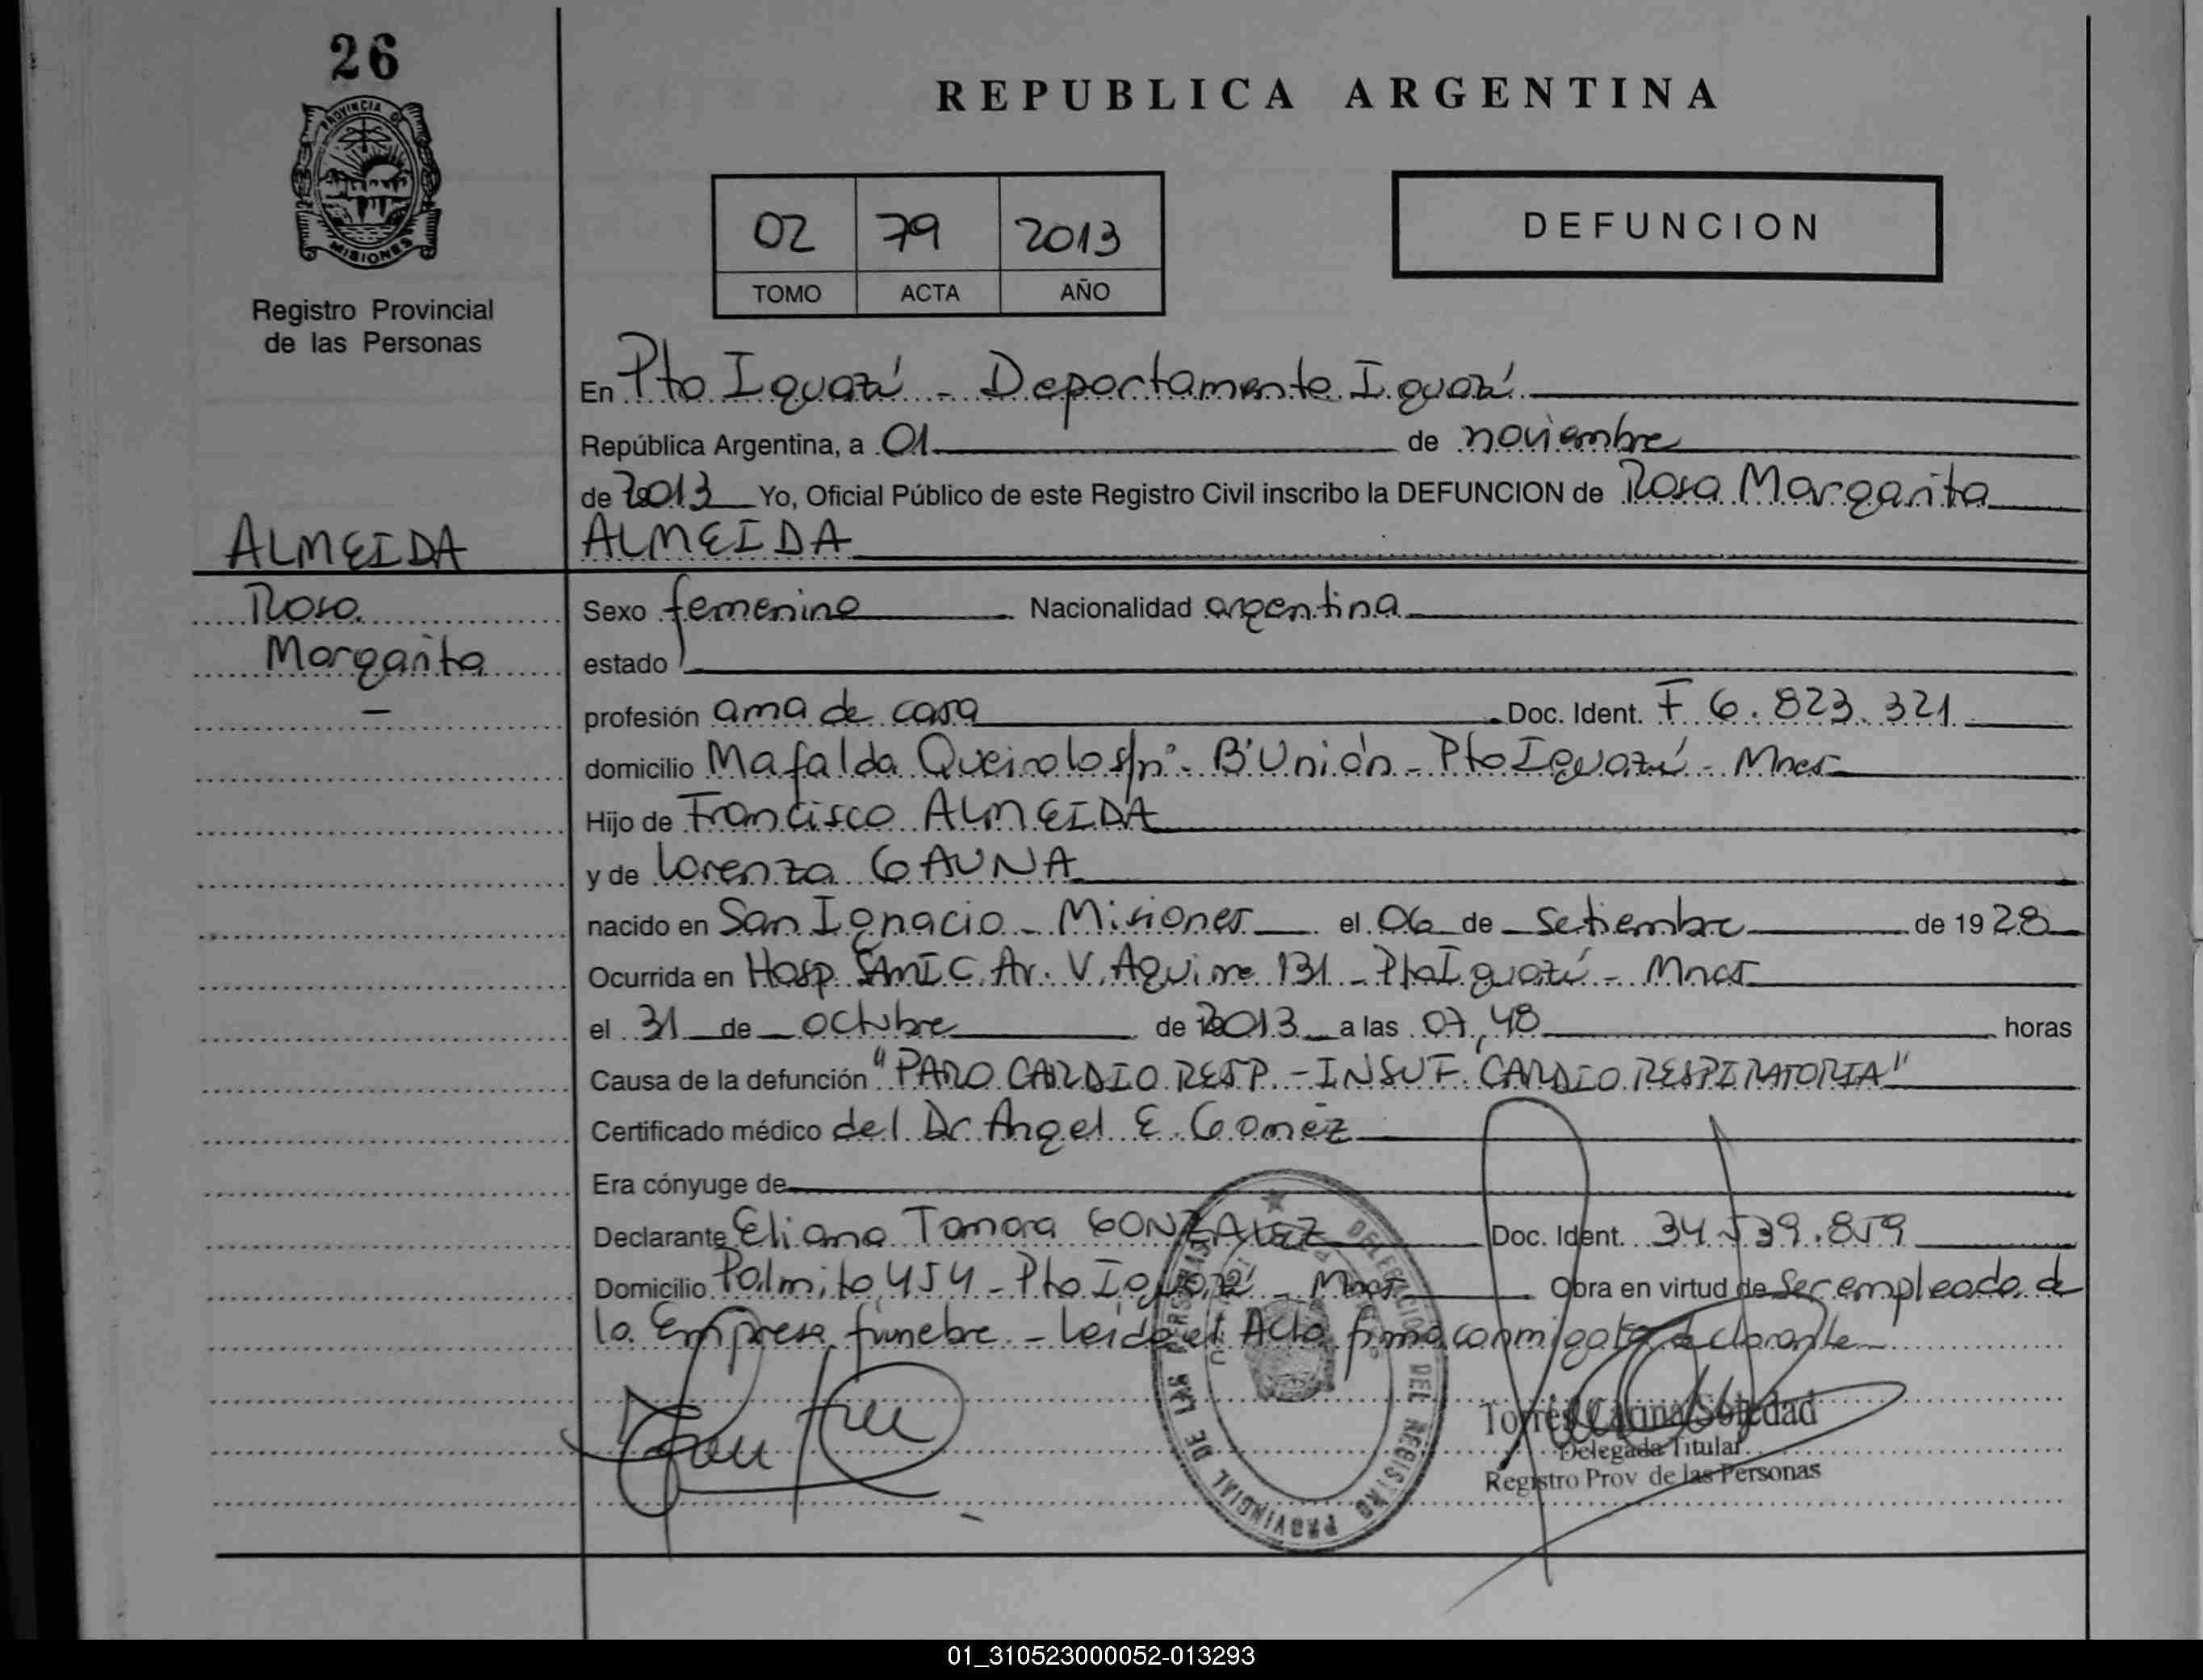 26
PROVINCIA DE
MISIONES
Registro Provincial
de las Personas
REPUBLICA ARGENTINA
02 79 2013
TOMO ACTA AÑO
DEFUNCION
En Pto Iguazú - Departamento Iguazú
República Argentina, a 01 de noviembre
de 2013 Yo, Oficial Público de este Registro Civil inscribo la DEFUNCION de Rosa Margarita
ALMEIDA
ALMEIDA
Rosa
Margarita
-
Sexo femenino Nacionalidad argentina
estado
profesión ama de casa Doc. Ident. F 6.823.321
domicilio Mafalda Queirolo s/nº - Bº Unión - Pto Iguazú - Mnes
Hijo de Francisco ALMEIDA
y de Lorenza GAUNA
nacido en San Ignacio - Misiones el 06 de Setiembre de 1928
Ocurrida en Hosp SAMIC. Av. V. Aguirre 131 - Pto Iguazú - Mnes
el 31 de octubre de 2013 a las 07,48 horas
Causa de la defunción "PARO CARDIO RESP. - INSUF. CARDIO RESPIRATORIA"
Certificado médico del Dr Angel E. Gomez
Era cónyuge de
Declarante Eliana Tamara GONZALEZ Doc. Ident. 34.539.859
Domicilio Palmito 454 - Pto Iguazú - Mnes Obra en virtud de Ser empleada de
la Empresa fúnebre - Leida el Acta firma conmigo la declarante
DELEGACION DEL REGISTRO PROVINCIAL DE LAS PERSONAS
Torres Carina Soledad
Delegada Titular
Registro Prov de las Personas
01_310523000052-013293